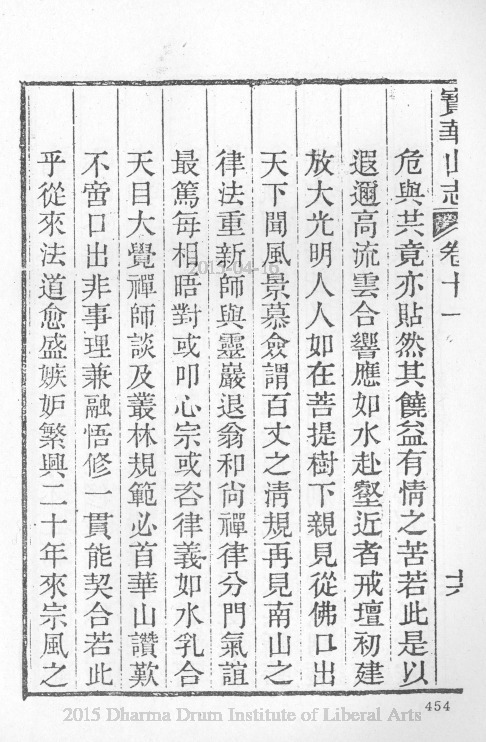 寶華山志 卷十一 十六
危與共竟亦貼然其饒益有情之苦若此是以
遐邇高流雲合響應如水赴壑近者戒壇初建
放大光明人人如在菩提樹下親見從佛口出
天下聞風景慕僉謂百丈之淸規再見南山之
律法重新師與靈巖退翁和尙禪律分門氣誼
最篤每相晤對或叩心宗或咨律義如水乳合
天目大覺禪師談及叢林規範必首華山讚歎
不啻口出非事理兼融悟修一貫能契合若此
乎從來法道愈盛嫉妒繁興二十年來宗風之
454
2017-04-16
2015 Dharma Drum Institute of Liberal Arts